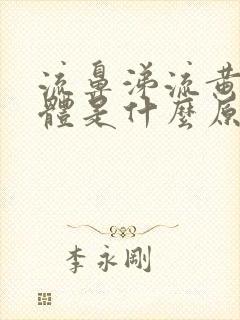 流鼻涕流黄
體是什麼原
李永剛